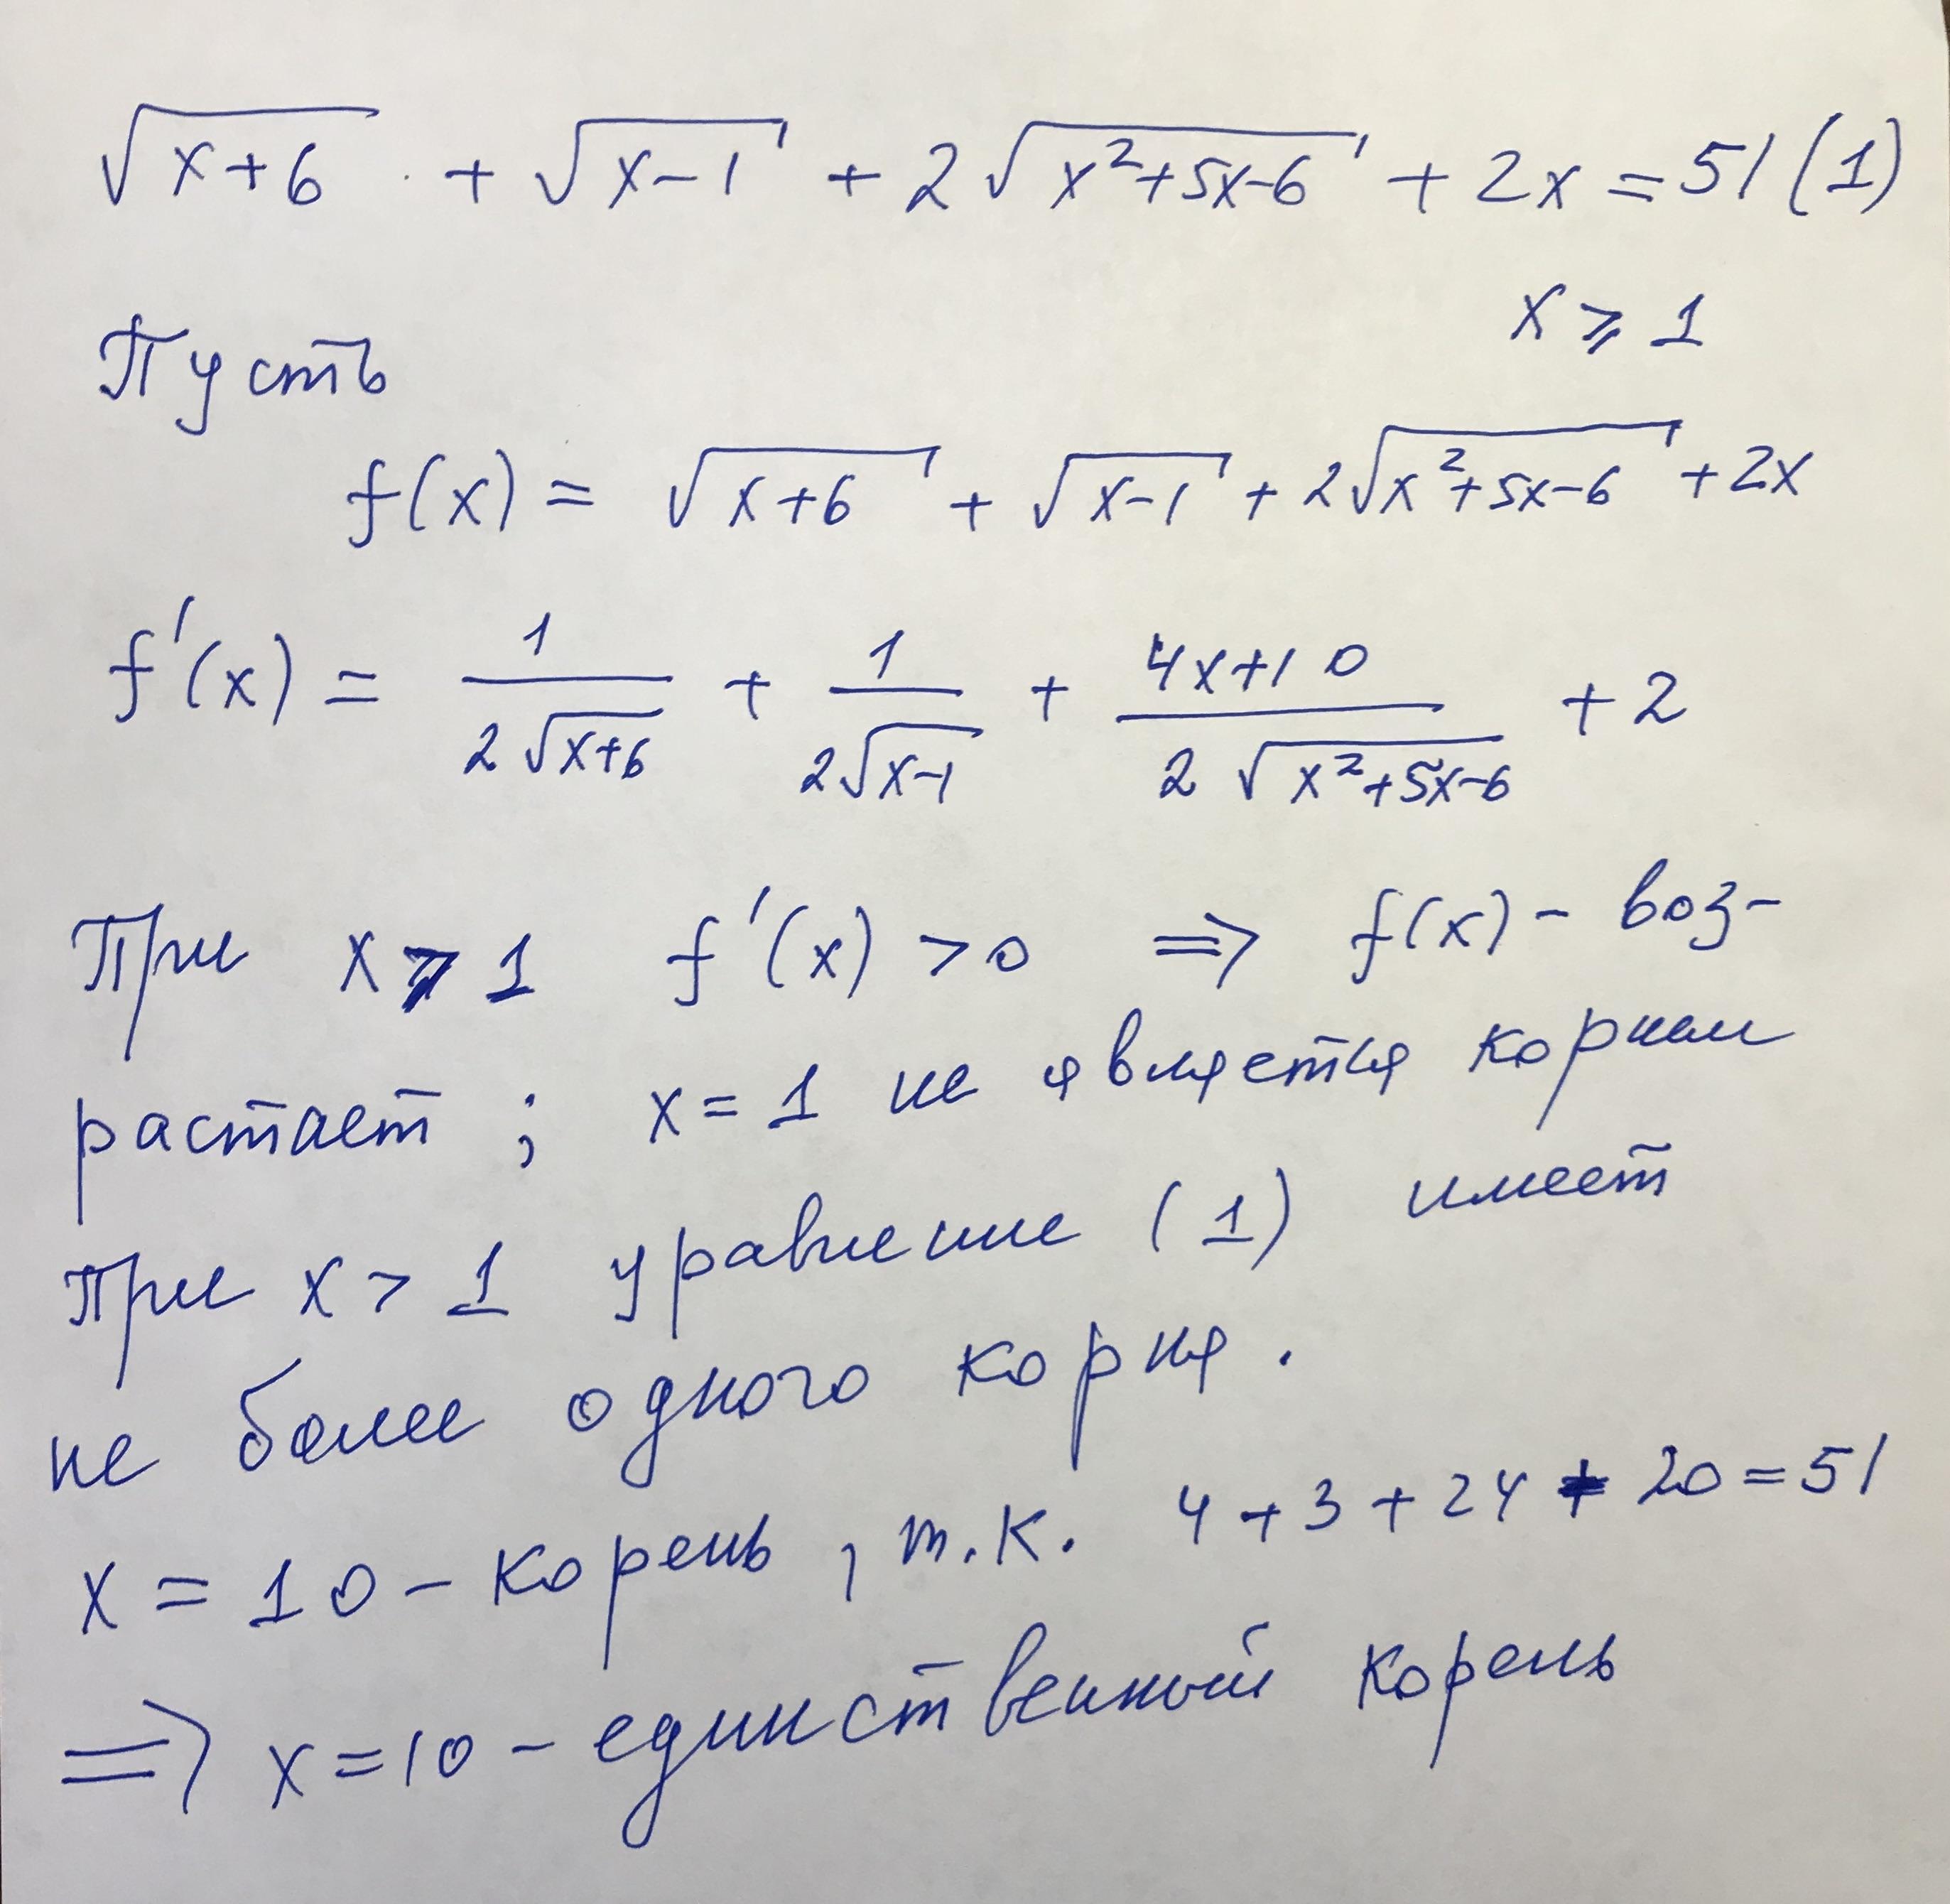 √(x+6) + √(x-1) + 2√(x²+5x-6) + 2x = 51 (1)
x ⩾ 1
Пусть
f(x) = √(x+6) + √(x-1) + 2√(x²+5x-6) + 2x
f'(x) = 1/(2√(x+6)) + 1/(2√(x-1)) + (4x+10)/(2√(x²+5x-6)) + 2
При x ⩾ 1 f'(x) > 0 ⇒ f(x) - воз-
растает ; x = 1 не является корнем
при x > 1 уравнение (1) имеет
не более одного корня .
x = 10 - корень , т.к. 4 + 3 + 24 + 20 = 51
⇒ x = 10 - единственный корень